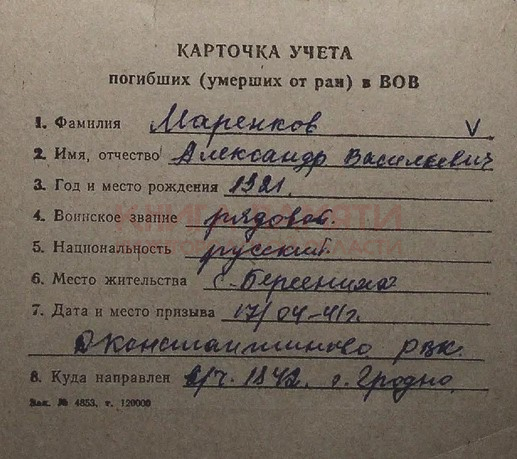 КАРТОЧКА УЧЕТА
погибших (умерших от ран) в ВОВ
1. Фамилия Маренков V
2. Имя, отчество Александр Васильевич
3. Год и место рождения 1921.
4. Воинское звание рядовой.
5. Национальность русский.
6. Место жительства с. Берсениха
7. Дата и место призыва 17/04-41г.
Д Константиново рвк.
8. Куда направлен в/ч. 1842. г. Гродно.
Зак. № 4853, т. 120000
КНИГА ПАМЯТИ